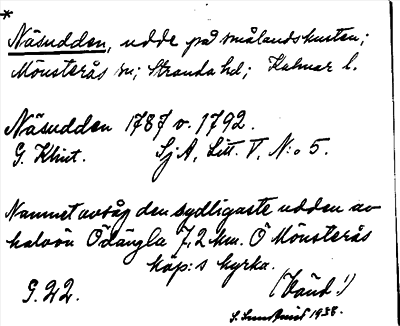 *
Näsudden, udde på smålandskusten;
Mönsterås sn; Stranda hd; Kalmar l.
Näsudden 1787 v. 1792.
G. Klint. SjA, Litt. V, N:o 5.
Namnet avsåg den sydligaste udden av
halvön Ödängla 7,2 km. Ö Mönsterås
köp:s kyrka.
G. 22. (Vänd!)
S. Sundquist 1938.